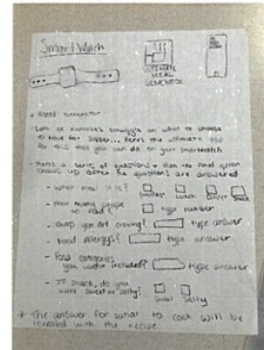 Smart Watch
ULTIMATE
MEAL
GENERATOR
* Meal Generator
Lots of families struggle on what to choose
to have for dinner... Here's the ultimate app
for this that you can do on your smartwatch
There's a series of questions & then the meal
shows up after the questions are answered
- What meal is it?
Breakfast Lunch Dinner Snack
- How many people
to feed? type number
- Things you are craving? type answer
- Food allergys? type answer
- Food categories
you want included? type answer
- If snack, do you
want sweet or salty?
Sweet Salty
* The answer for what to cook will be
revealed with the recipe